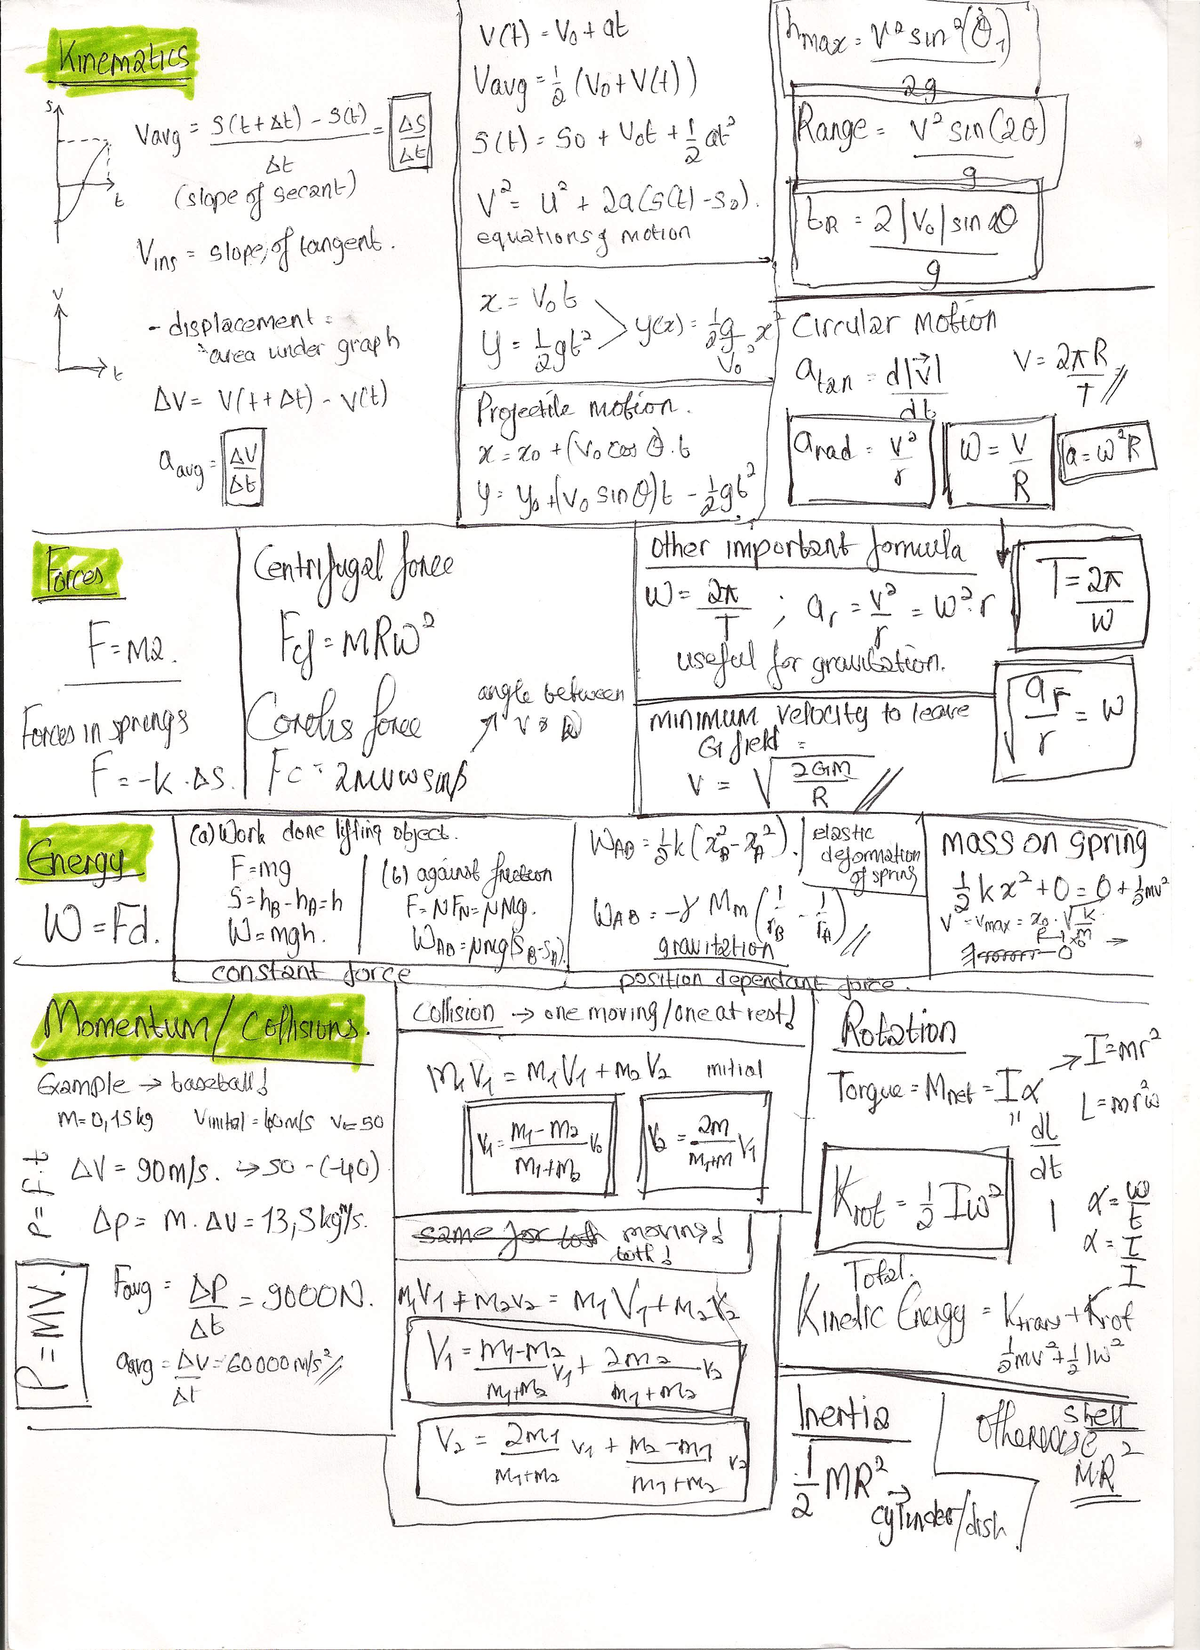 Kinematics
S
t
Vavg = S(t+Δt) - S(t) / Δt = ΔS/Δt
(slope of secant)
Vins = slope of tangent.
V
t
- displacement =
area under graph
ΔV = V(t+Δt) - V(t)
aavg = ΔV/Δt
V(t) = V0 + at
Vavg = 1/2 (V0 + V(t))
S(t) = S0 + V0t + 1/2 at²
V² = U² + 2a(S(t) - S0).
equations of motion
x = V0t
y = 1/2 gt²
y(x) = 1/2 g/V0² x²
Projectile motion.
x = x0 + (V0 cos θ.t
y = y0 + (V0 sin θ)t - 1/2 gt²
hmax = V² sin²(θ1) / 2g
Range = V² sin(2θ) / g
tR = 2|V0| sin θ / g
Circular Motion
atan = d|v⃗| / dt
V = 2πR / T
arad = V²/r
ω = V/R
a = ω²R
Forces
F = ma.
Forces in springs
F = -k.ΔS.
Centrifugal force
Fcf = mRω²
Coriolis force
angle between
V & ω
Fc = 2mvω sinβ
Other important formula
ω = 2π/T ; ar = V²/r = ω².r
useful for gravitation.
T = 2π/ω
√(ar/r) = ω
minimum velocity to leave
G field =
V = √(2GM/R)
Energy
W = Fd.
(a) Work done lifting object.
F = mg
S = hB - hA = h
W = mgh.
(b) against friction
F = μFN = μmg.
WAB = μmg(SB - SA).
constant force
WAB = 1/2 k(xB² - xA²).
elastic
deformation
of spring
WAB = -γ Mm (1/rB - 1/rA)
gravitation
position dependant force.
mass on spring
1/2 kx² + 0 = 0 + 1/2 mv²
V = Vmax = x0.√(k/m)
Momentum/Collisions.
Example → baseball!
m = 0,15kg Vinital = 40m/s Vf = 50
ΔV = 90m/s. → 50 - (-40)
Δp = m.ΔV = 13,5 kgm/s.
P = F.t
P = MV.
Favg = ΔP/Δt = 9000N.
aavg = ΔV/Δt = 60000m/s²
Collision → one moving/one at rest!
m1V1 = m1V1 + m2V2 initial
V1 = m1 - m2 / m1 + m2 V0
V2 = 2m / m1+m V1
same for both moving!
both!
m1V1 + m2V2 = m1V1 + m2V2
V1 = m1 - m2 / m1+m2 V1 + 2m2 / m1+m2 V2
V2 = 2m1 / m1+m2 V1 + m2 - m1 / m1+m2 V2
Rotation
→ I = mr²
Torque = Mnet = Iα
L = mr²ω
" dL/dt
Krot = 1/2 Iω²
α = ω/t
α = I/I
Total.
Kinetic Energy = Ktrans + Krot
1/2 mv² + 1/2 Iω²
Inertia
1/2 MR²
→ cylinder/dish
shell
otherwise
MR²